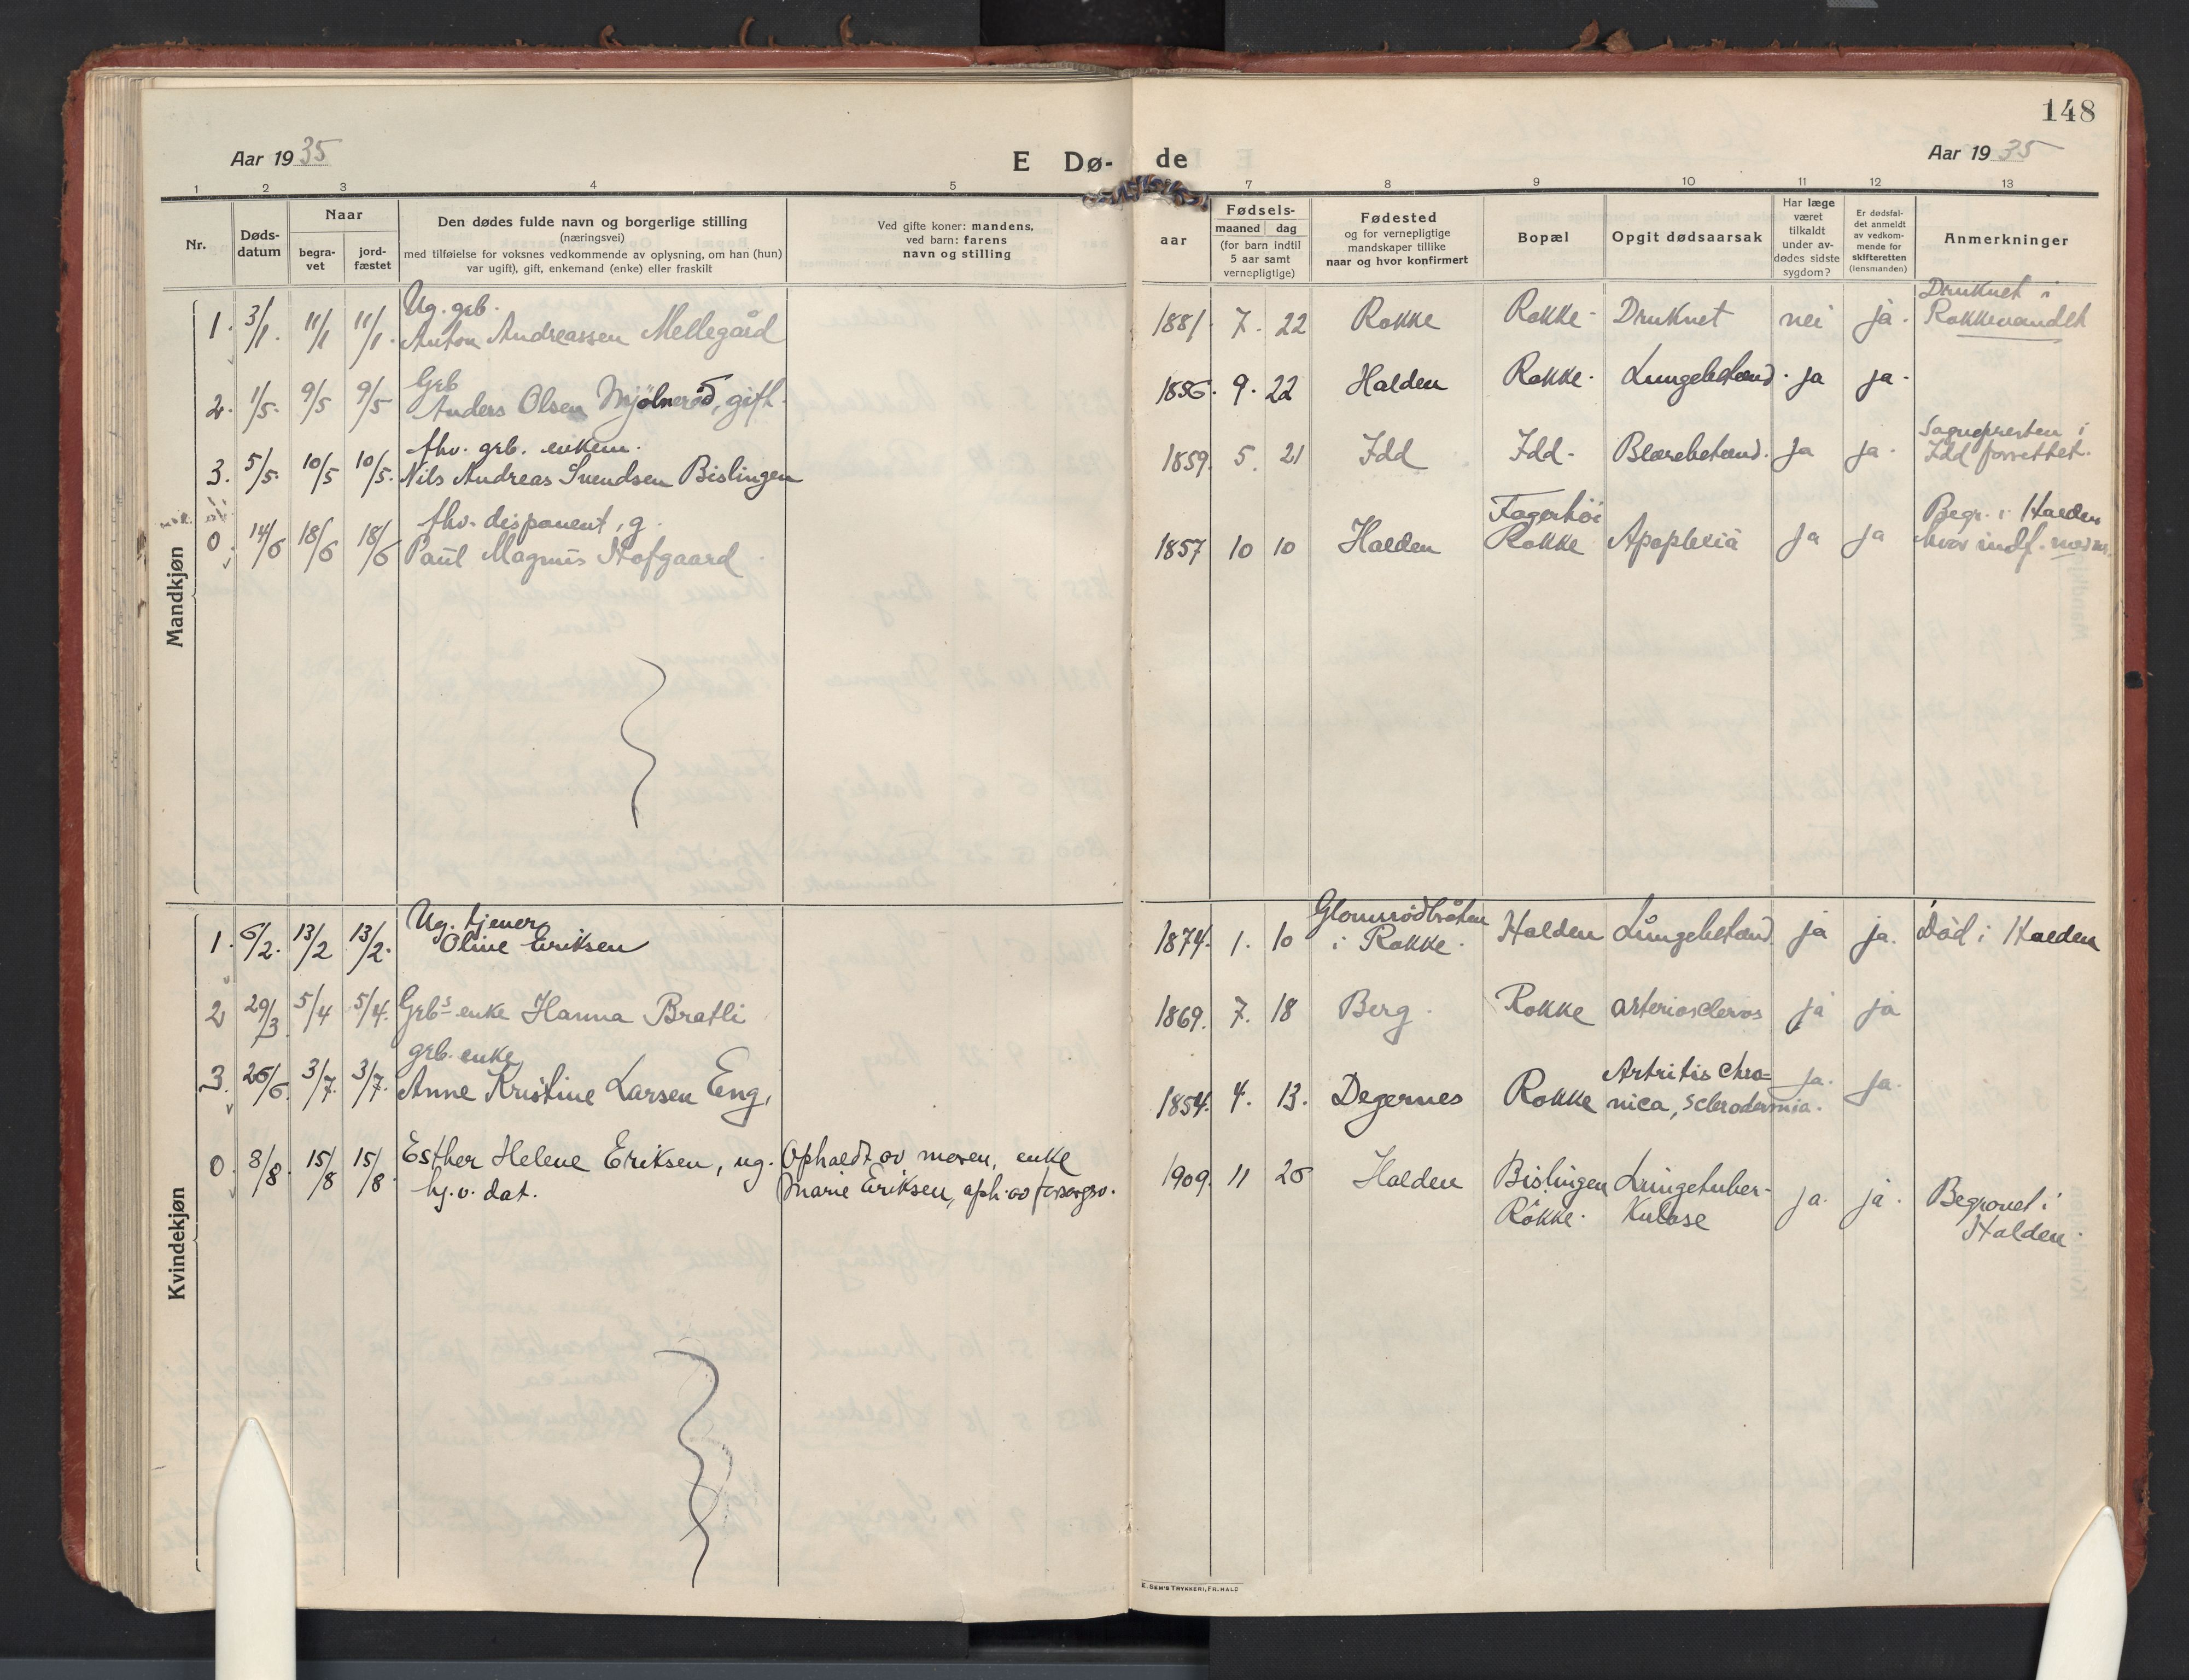 148
Aar 1935
E Dø-
de
Aar 1935
1 2 3 4 5
7 8 9 10 11 12 13
Nr.
Døds-
datum
Naar
begra-
vet
jord-
fæstet
Den dødes fulde navn og borgerlige stilling
(næringsvei)
med tilføielse for voksnes vedkommende av oplysning, om han (hun)
var ugift), gift, enkemand (enke) eller fraskilt
Ved gifte koner: mandens,
ved barn: farens
navn og stilling
aar
Fødsels-
maaned dag
(for barn indtil
5 aar samt
vernepligtige)
Fødested
og for vernepligtige
mandskaper tillike
naar og hvor konfirmert
Bopæl
Opgit dødsaarsak
Har læge
været
tilkaldt
under av-
dødes sidste
sygdom?
Er dødsfal-
det anmeldt
av vedkom-
mende for
skifteretten
(lensmanden)
Anmerkninger
Mandkjøn
Ug. grb. Druknet i
1. 3/1. 11/1 11/1. Anton Andreassen Mellegård 1881. 7. 22 Rokke Rokke- Druknet nei ja. Rokkevandet
Grb
2. 1/5. 9/5 9/5 Anders Olsen Mjölneröd, gift. 1856. 9. 22 Halden Rokke. Lungebetænd. ja ja.
fhv. grb. enkem. Sognepresten i
3. 5/5. 10/5 10/5. Nils Andreas Svendsen Bislingen 1859. 5. 21 Idd Idd. Blærebetænd. ja ja. Idd forrettet.
fhv. disponent, g. Fagerhöi Begr. i Halden
0. 14/6 18/6 18/6 Paul Magnus Hofgaard 1857 10 10 Halden Rokke Apoplexia ja ja hvor indf.
Kvindekjøn
Ug. tjener Glomsrödbråten
1. 6/2. 13/2 13/2. Oline Eriksen 1874. 1. 10 i Rokke. Halden Lungebetænd. ja ja. Död i Halden
2 29/3. 5/4 5/4. Grbs enke Hanna Bratli 1869. 7. 18 Berg. Rokke arterioscleros ja ja
grb. enke Artritis chro=
3. 26/6. 3/7. 3/7. Anne Kristine Larsen Eng, 1854. 4. 13. Degernes Rokke nica, sclerodermia. ja. ja.
0. 8/8. 15/8 15/8. Esther Helene Eriksen, ug. Opholdt av moren, enke 1909. 11 26 Halden Bislingen Lungetuber- ja. ja. Begravet i
hj.v. dat. Marie Eriksen, oph. av forsorgsv. Rokke. kulose Halden.
E. SEM'S TRYKKERI, FR.HALD